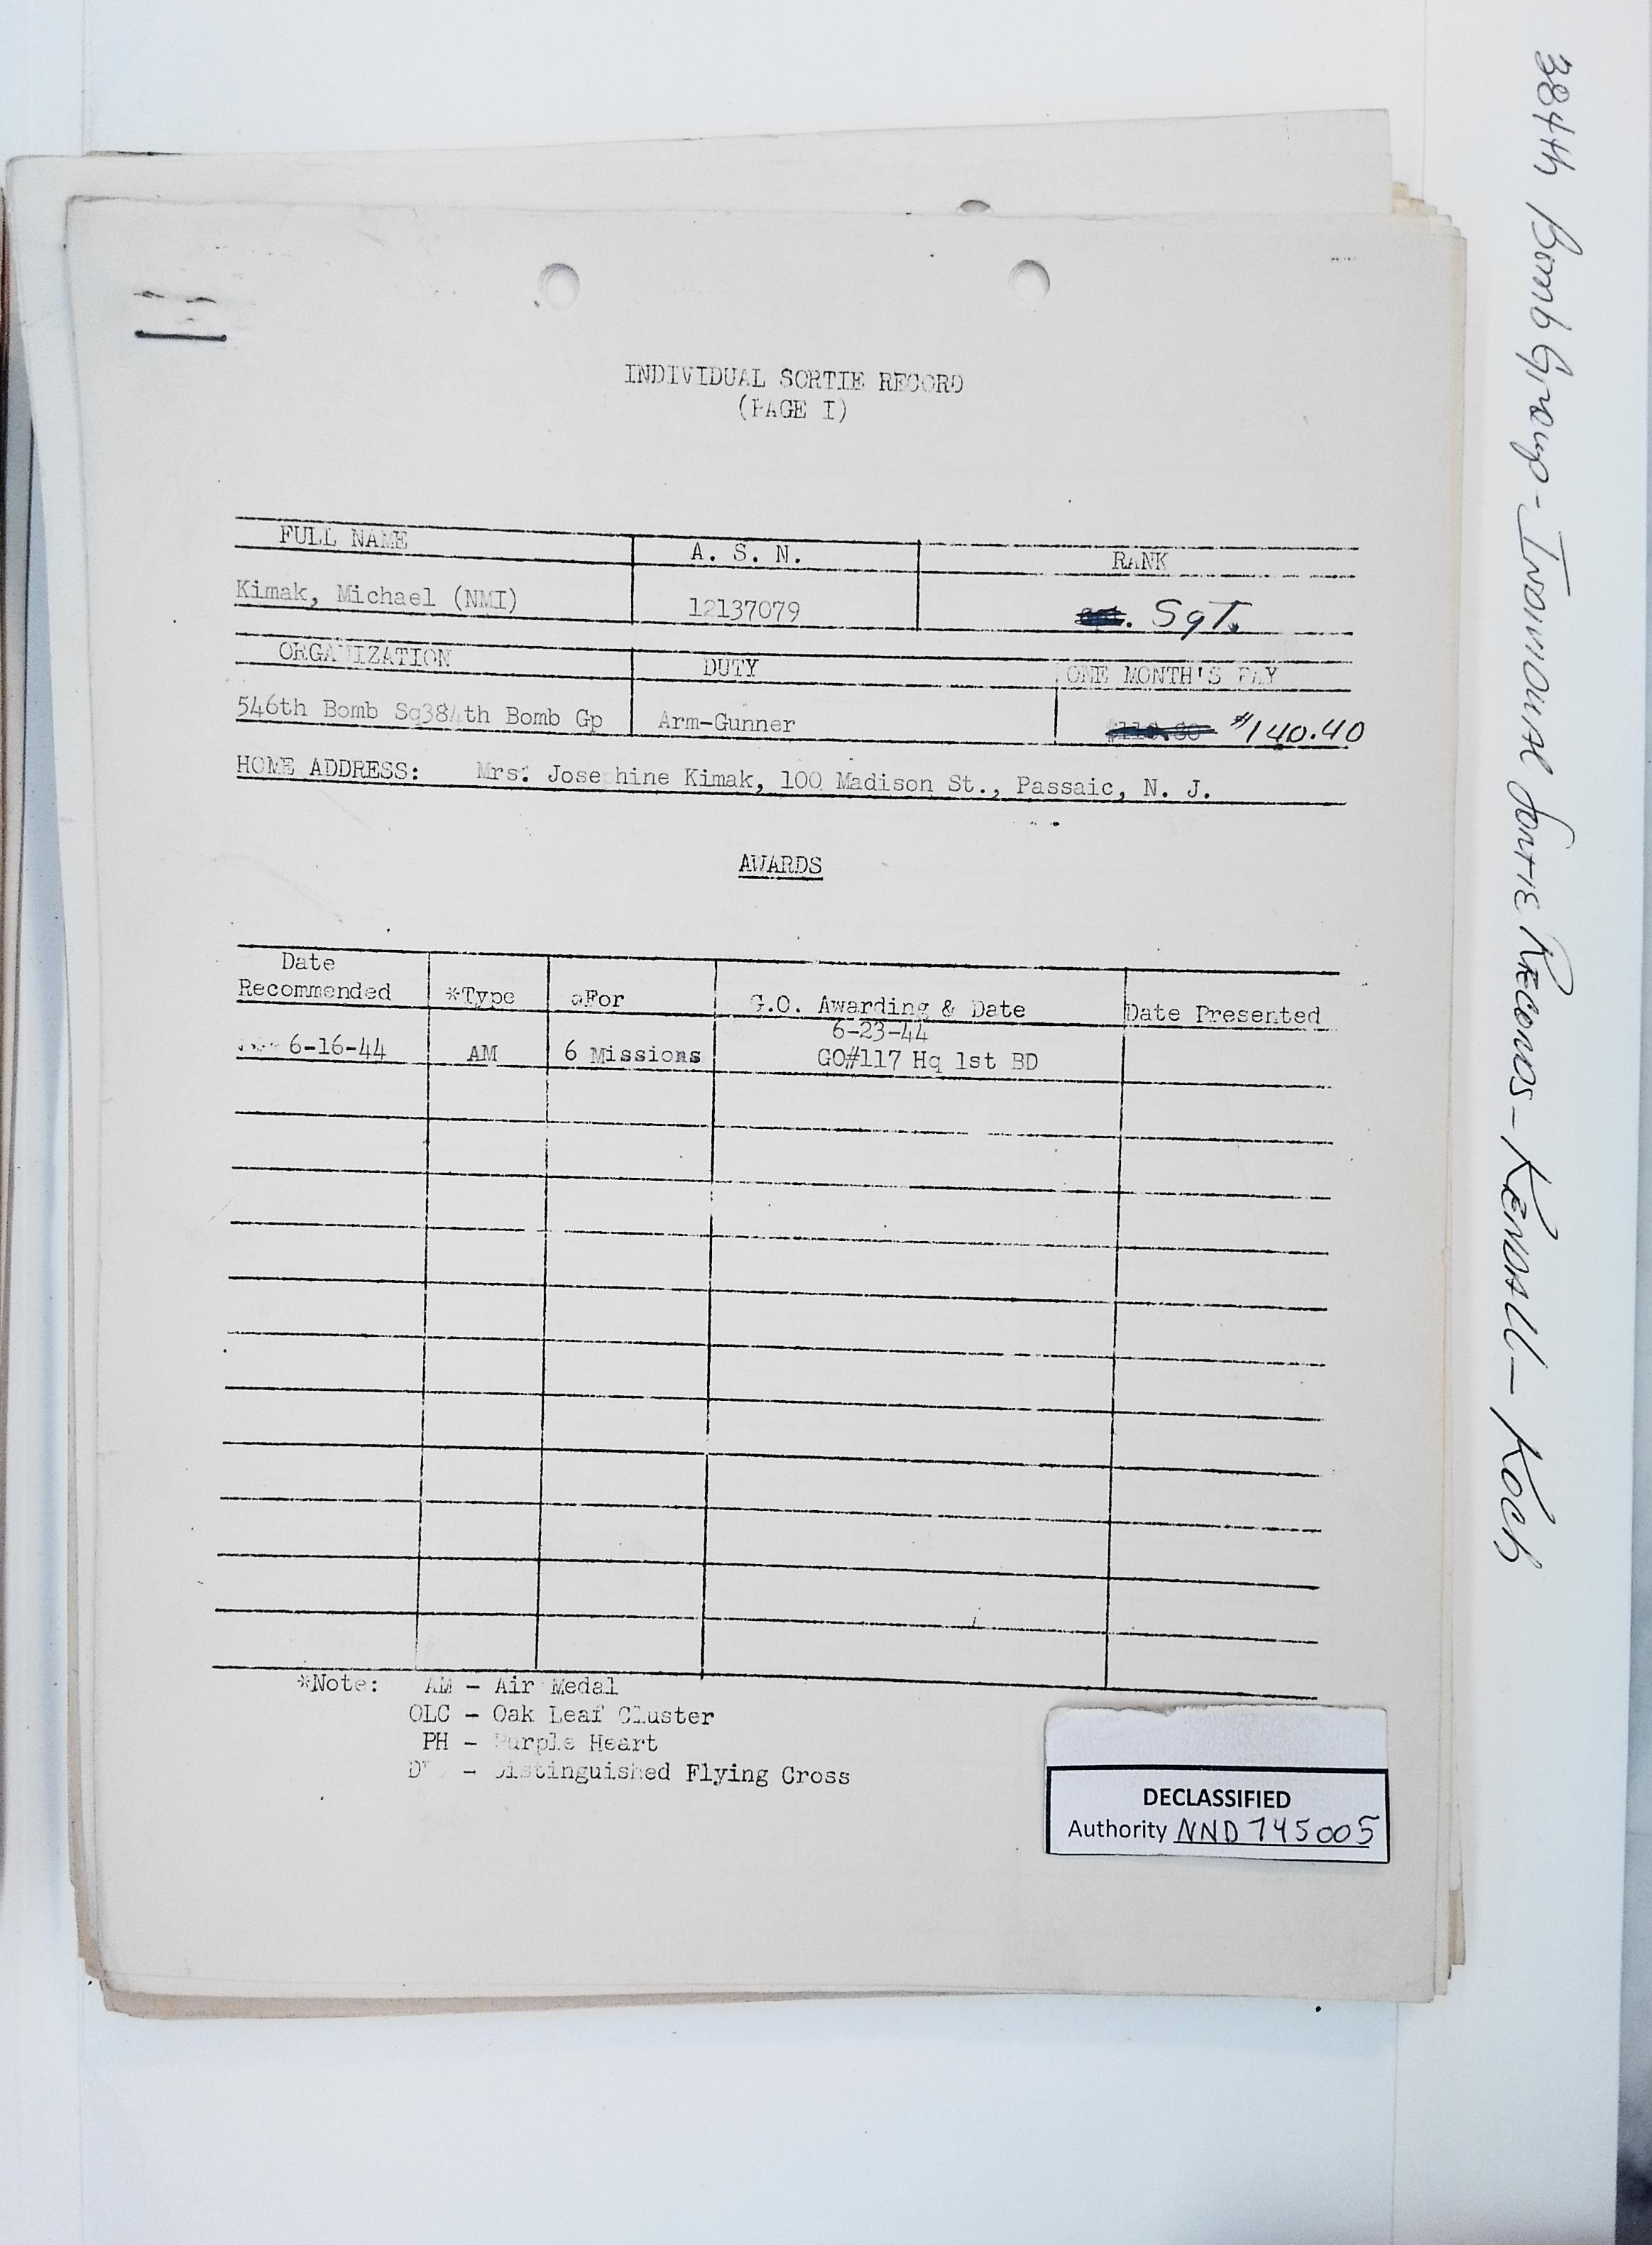 INDIVIDUAL SORTIE RECORD
(PAGE I)
FULL NAME A. S. N. RANK
Kimak, Michael (NMI) 12137079 . SgT.
ORGANIZATION DUTY ONE MONTH'S PAY
546th Bomb Sq384th Bomb Gp Arm-Gunner $140.40
HOME ADDRESS: Mrs. Josephine Kimak, 100 Madison St., Passaic, N. J.
AWARDS
Date
Recommended *Type For G.O. Awarding & Date Date Presented
6-23-44
6-16-44 AM 6 Missions GO#117 Hq 1st BD
*Note: AM - Air Medal
OLC - Oak Leaf Cluster
PH - Purple Heart
DFC - Distinguished Flying Cross
DECLASSIFIED
Authority NND 745005
384th Bomb Group - Individual Sortie Records - Kendall - Koch